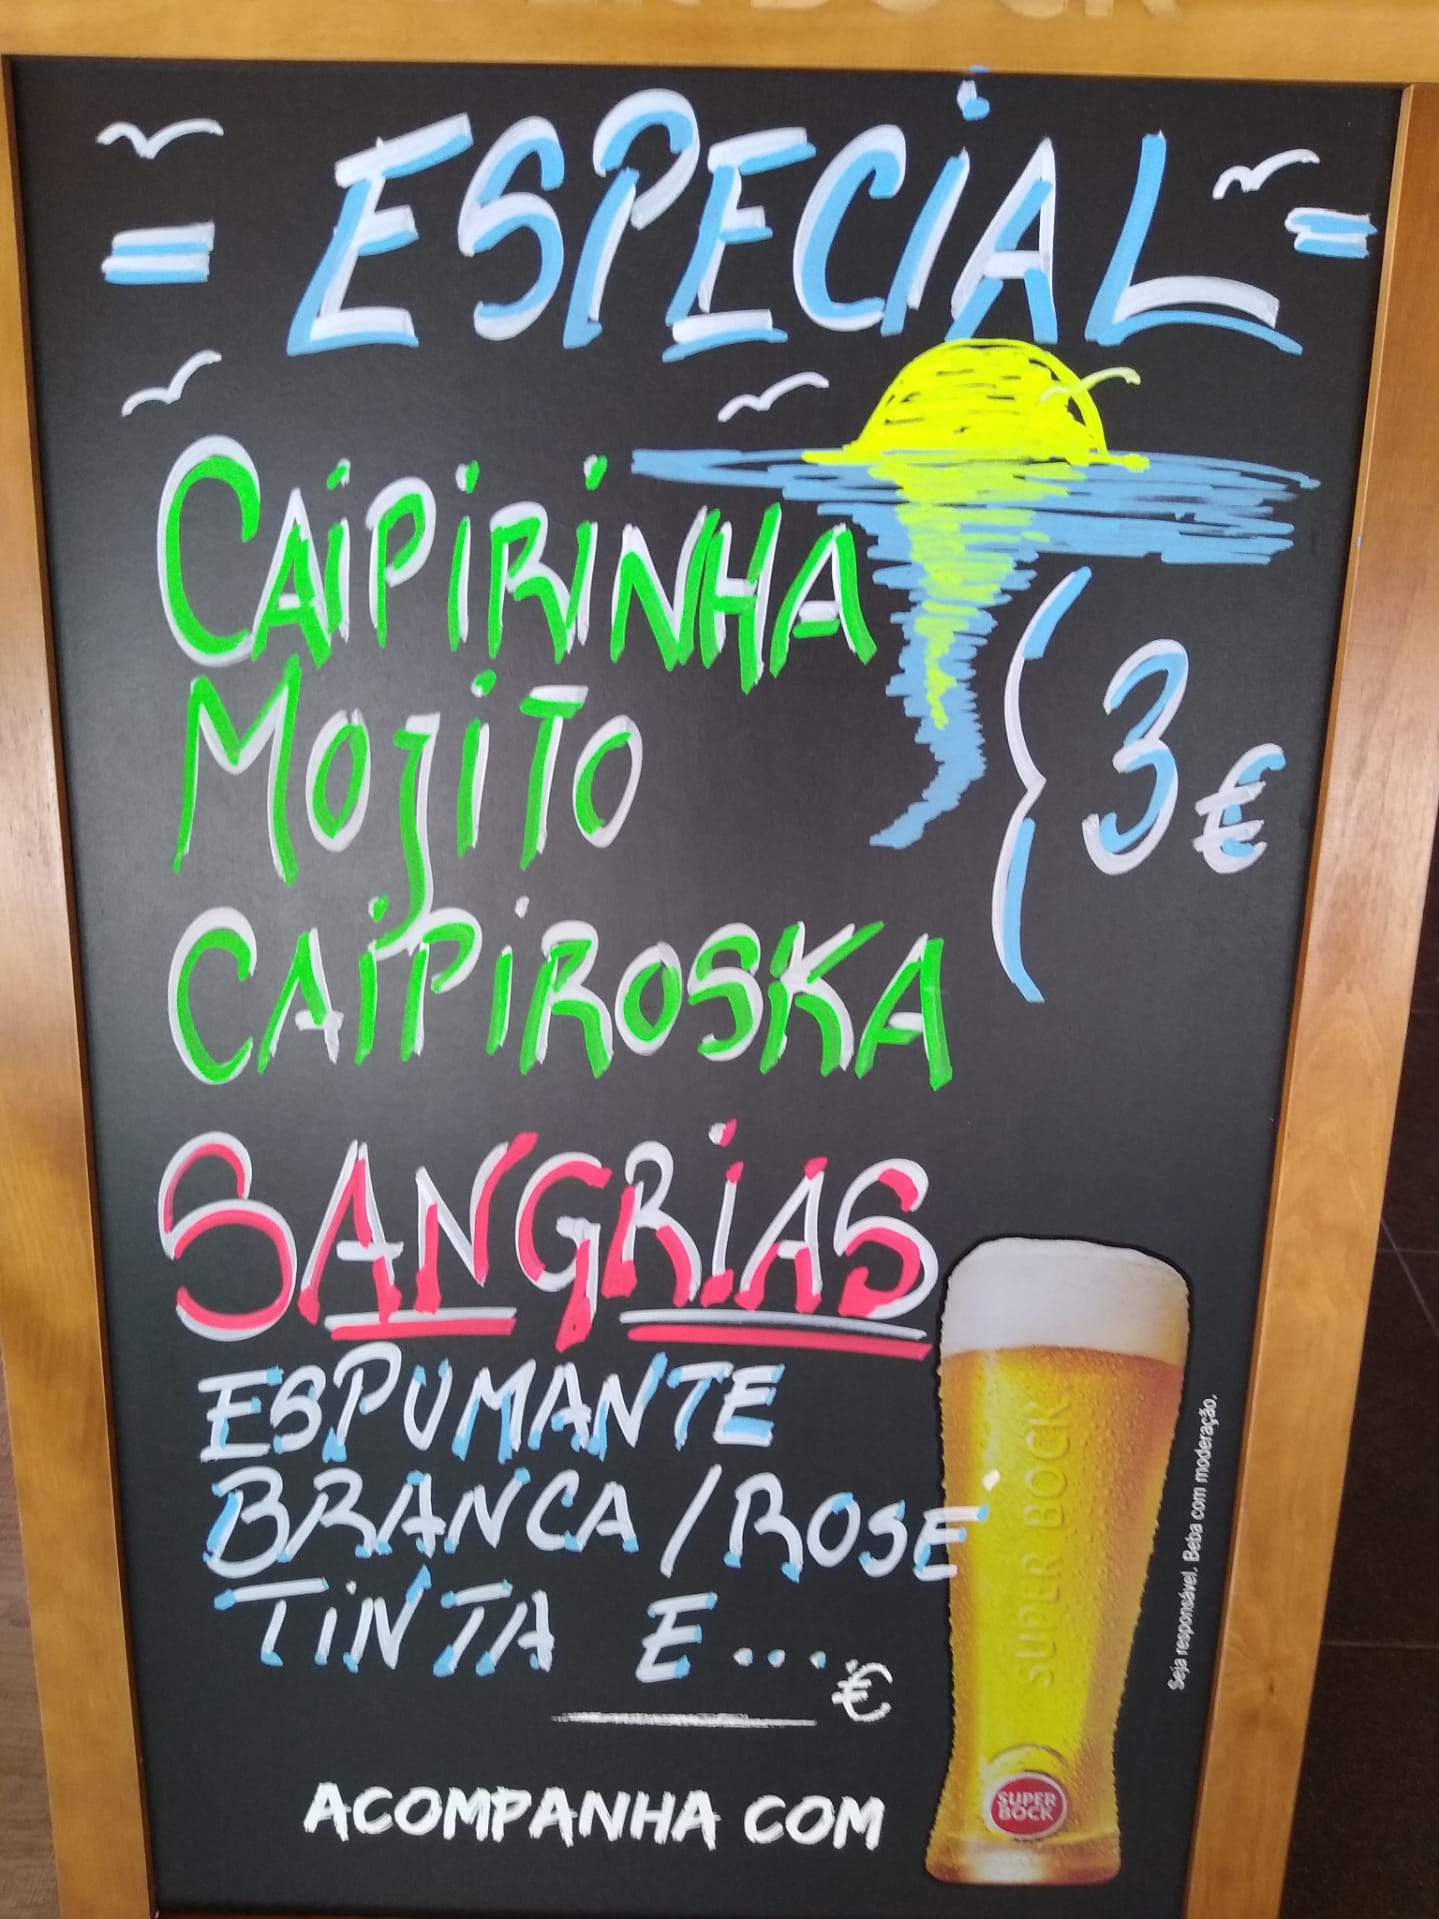 = ESPECIAL =
CAIPIRINHA
MOJITO
3€
CAIPIROSKA
SANGRIAS
ESPUMANTE
BRANCA/ROSÉ
TINTA E...
€
ACOMPANHA COM
SUPER BOCK
SUPER
BOCK
Seja responsável. Beba com moderação.